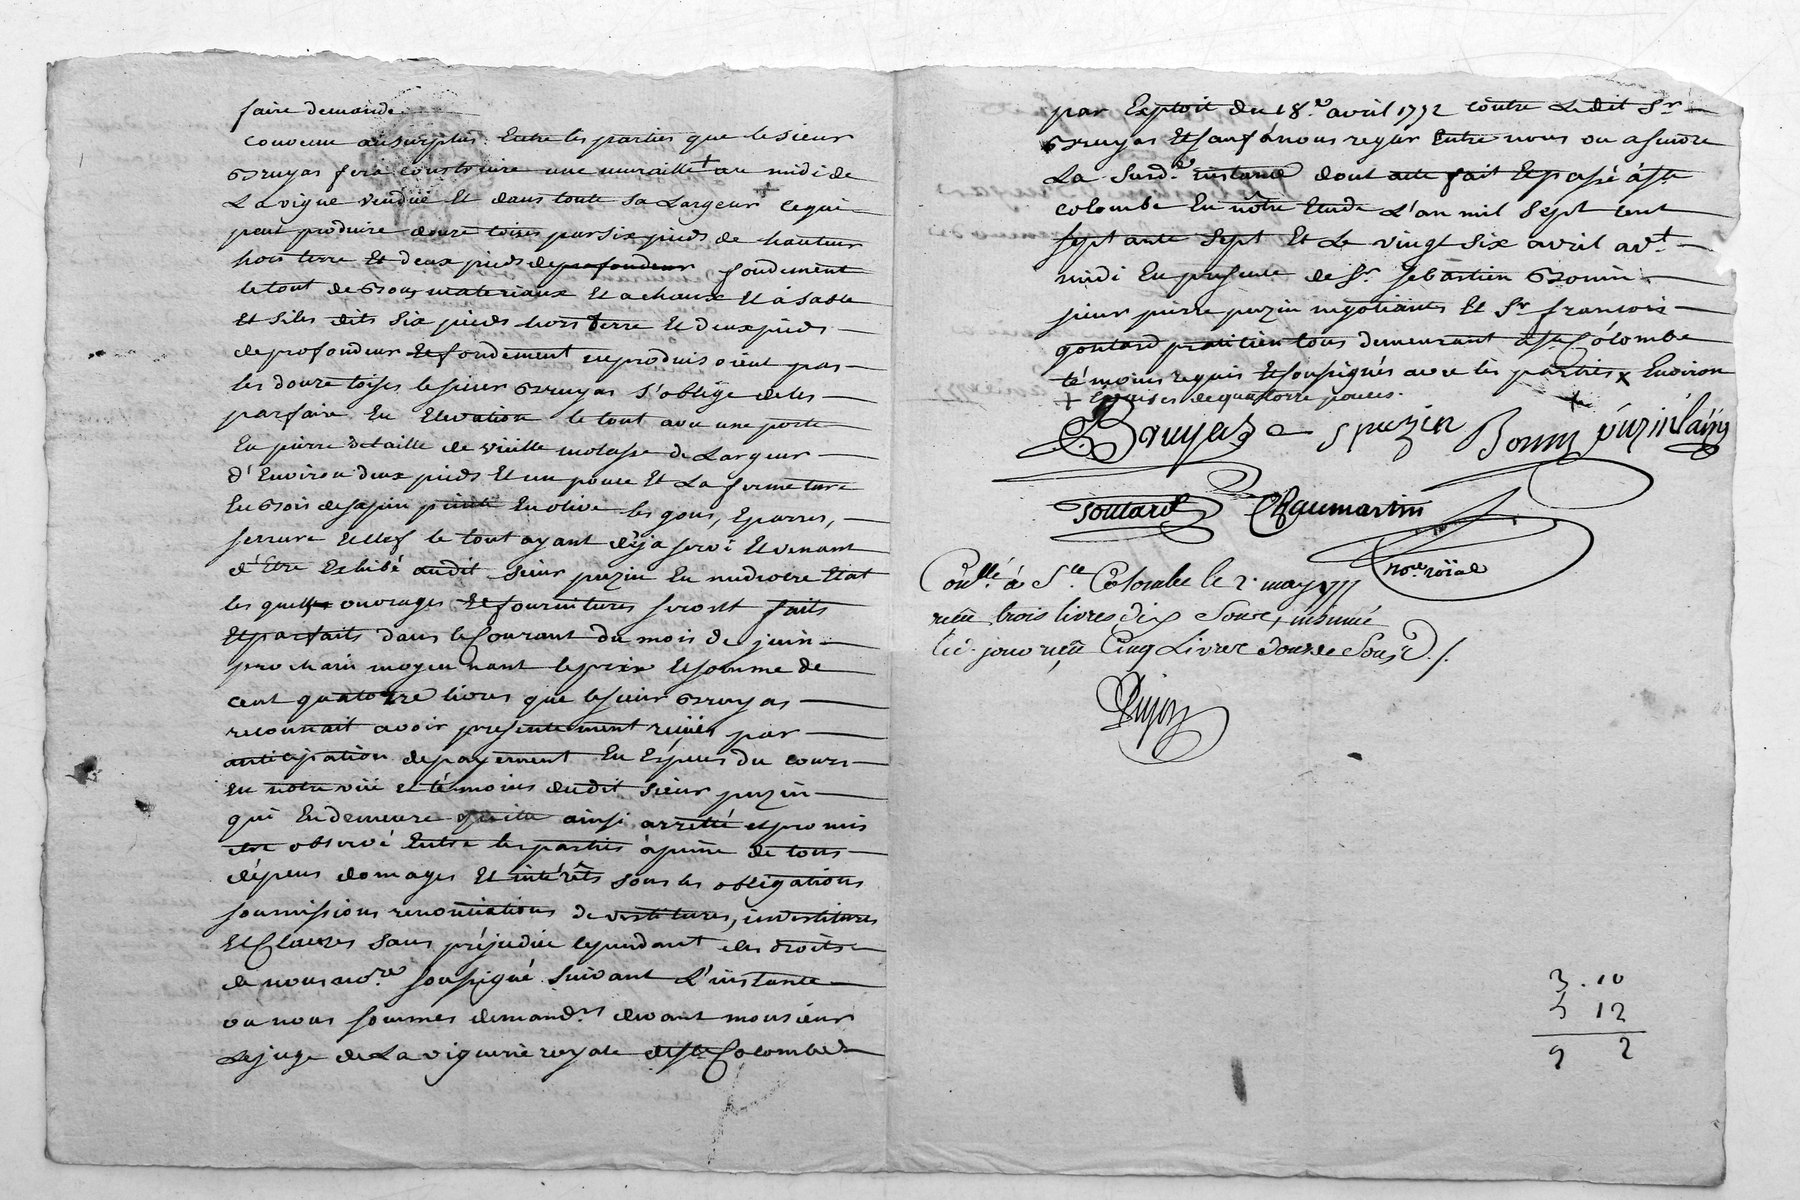 faire demande.
Convenu ausurplus Entre les parties que le sieur
Bruyas fera construire une muraille + au midi de
La vigne venduë Et dans toute sa Largeur + ce qui
peut produire douze toises par six pieds de hauteur
hors terre Et deux pieds de profondeur fondement
le tout de Bons materiaux Et a chaux Et à sable
Et si les dits six pieds hors terre Et deux pieds
de profondeur Et fondement ne produisoient pas
les douze toises le sieur Bruyas s'oblige de les
parfaire En Elevation le tout avec une porte
En pierre de taille de vieille molasse de Largeur
d'Environ deux pieds Et un pouce Et La fermeture
En Bois de sapin peinte En olive les gons, Eparres,
serrure Et clef le tout ayant déja servi Et venant
d'Etre Exhibé audit sieur puzin En mediocre Etat
les quels ouvrages Et fournitures seront faits
Et parfaits dans le Courant du mois de juin
prochain moyennant le prix Et somme de
cent quatorze livres que le sieur Bruyas
reconnait avoir presentement reçües par
anticipation de payement En Espèces du cours
En notre vüe et témoins dudit sieur puzin
qui En demeure quitte ainsi arretté et promis
etre observé Entre les parties à peine de tous
dépens domages Et intérêts sous les obligations
soumissions renonciations de vestitures, investitures
Et Clauzes sans préjudice cependant des droits
de nous no.re soussigné suivant L'instance
ou nous sommes demand.rs devant monsieur
Le juge de La viguerie royale de Ste Colombe
par Exploit du 18.e avril 1772 contre Le dit Sr
Bruyas Et sauf à nous regler Entre nous ou a suivre
La susd.e instance dont acte fait Et passé à Ste
Colombe En nôtre Etude L'an mil Sept Cent
septante Sept Et Le vingt six avril av.t
midi En presence de Sr. sebastien Bonin
sieur pierre puzin negotiants Et Sr francois
goutard praticien tous demeurant à Ste Colombe
témoins requis Et soussignés avec les parties x Environ
+ Epaisses de quatorze pouces.
Bruyas s puzin Bonin puzin l'ainé
Goutard Chaumartin
no.re roïal
Con.llé à S.te Colombe le 2 may 1777
reçu trois livres dix Sous, insinué
led. jour reçu Cinq Livres douze Sous
3 . 10
5 12
9 2